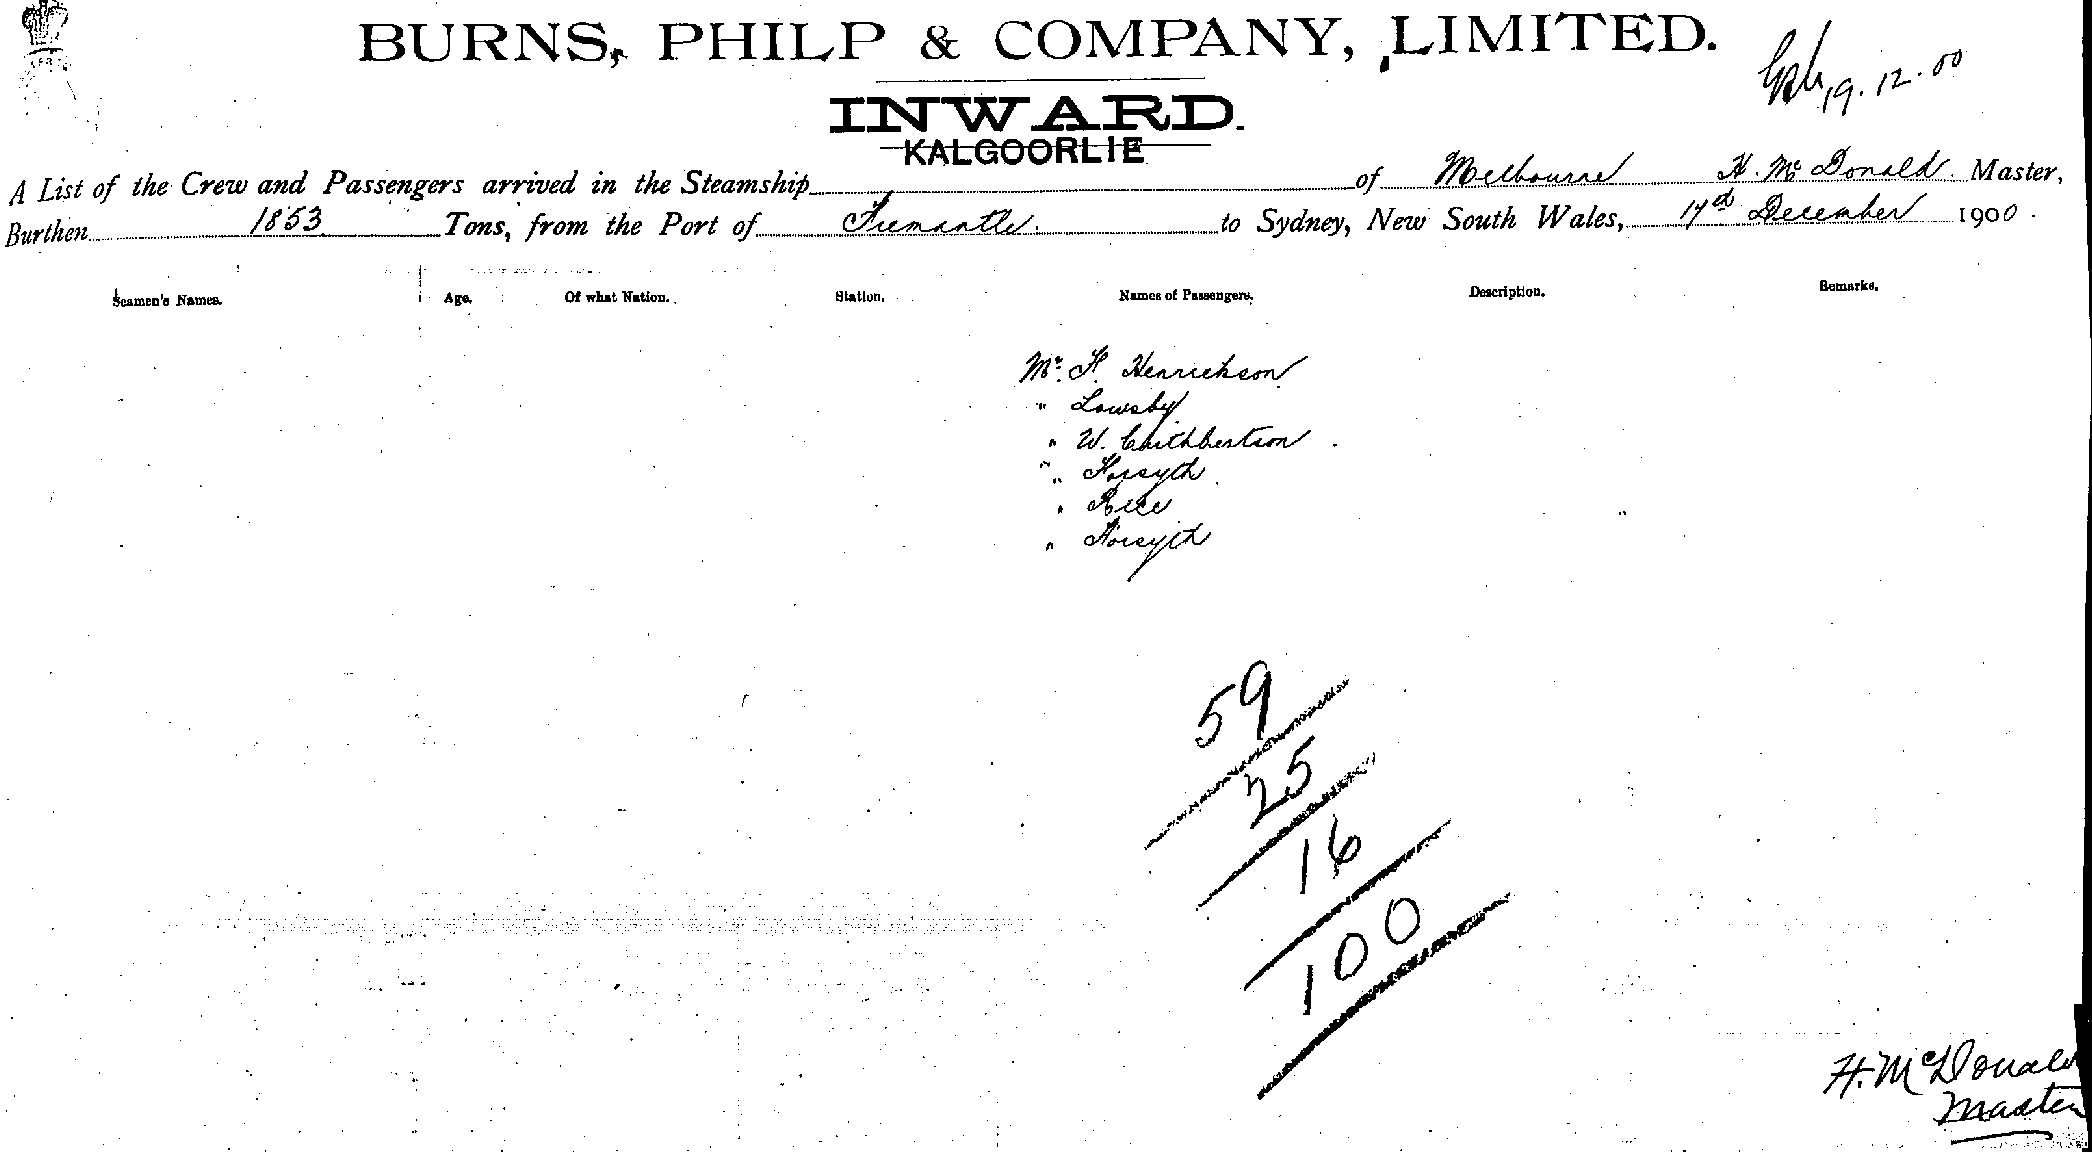 BURNS, PHILP & COMPANY, LIMITED.
19.12.00
INWARD.
KALGOORLIE
A List of the Crew and Passengers arrived in the Steamship of Melbourne H. McDonald Master,
Burthen 1853 Tons, from the Port of Fremantle. to Sydney, New South Wales, 17th December 1900.
Seamen's Names. Age. Of what Nation. Station. Names of Passengers. Description. Remarks.
Mr. F. Henrickson
" Lowsby
" W. Cuithbertson
" Forsyth
" Rice
" Forsyth
59
25
16
100
H. McDonald
Master